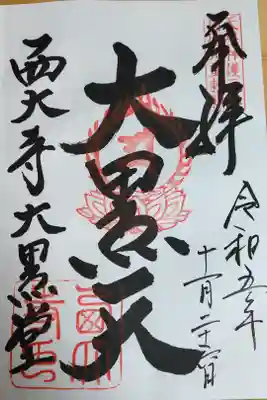 奉拝
令和五年
十一月二十六日
大黒天
西大寺大黒堂